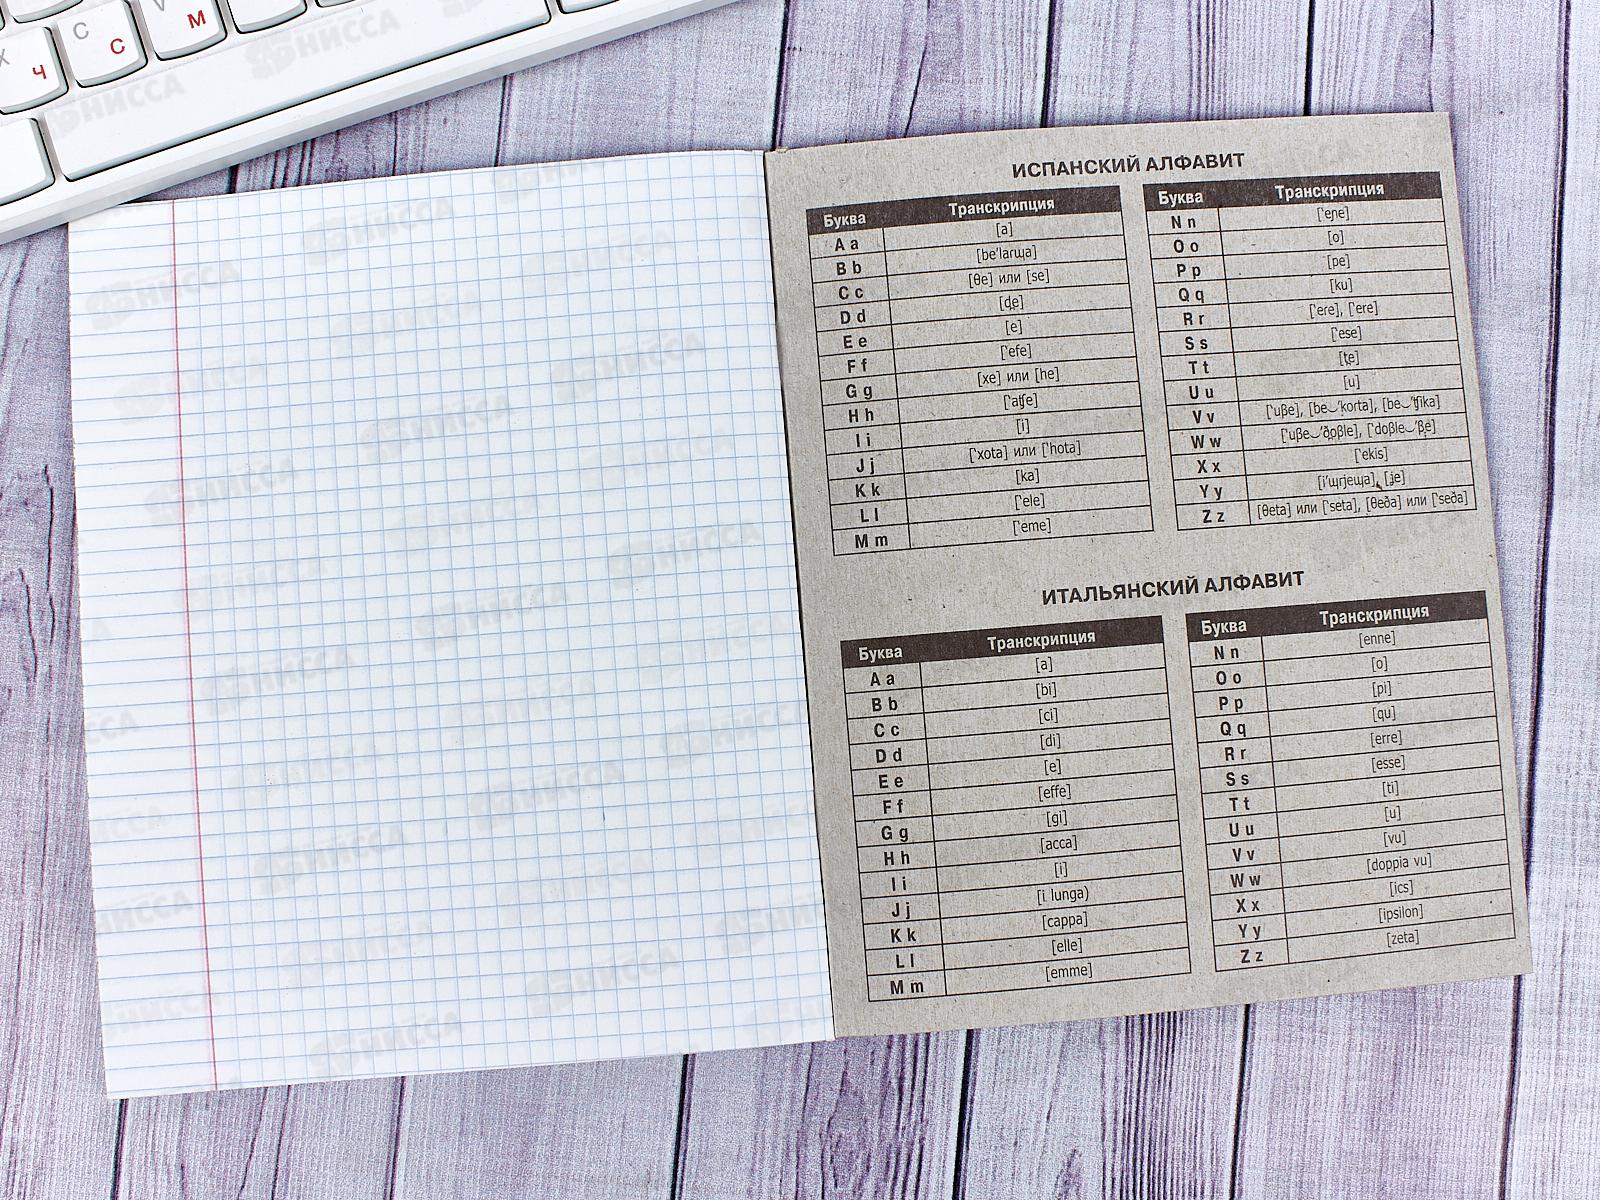 Х Ч
С С
М
ИСПАНСКИЙ АЛФАВИТ
Буква Транскрипция
A a [a]
B b [be'larɰa]
C c [θe] или [se]
D d [d̪e]
E e [e]
F f ['efe]
G g [xe] или [he]
H h ['aʧe]
I i [i]
J j ['xota] или ['hota]
K k [ka]
L l ['ele]
M m ['eme]
Буква Транскрипция
N n ['eɲe]
O o [o]
P p [pe]
Q q [ku]
R r ['ere], ['ere]
S s ['ese]
T t [t̪e]
U u [u]
V v ['uβe], [be‿'korta], [be‿'ʧika]
W w ['uβe‿'ðoβle], ['doβle‿'βe]
X x ['ekis]
Y y [i'ɰrjeɰa], [ʝe]
Z z [θeta] или ['seta], [θeða] или ['seða]
ИТАЛЬЯНСКИЙ АЛФАВИТ
Буква Транскрипция
A a [a]
B b [bi]
C c [ci]
D d [di]
E e [e]
F f [effe]
G g [gi]
H h [acca]
I i [i]
J j [i lunga)
K k [cappa]
L l [elle]
M m [emme]
Буква Транскрипция
N n [enne]
O o [o]
P p [pi]
Q q [qu]
R r [erre]
S s [esse]
T t [ti]
U u [u]
V v [vu]
W w [doppia vu]
X x [ics]
Y y [ipsilon]
Z z [zeta]
НИССА